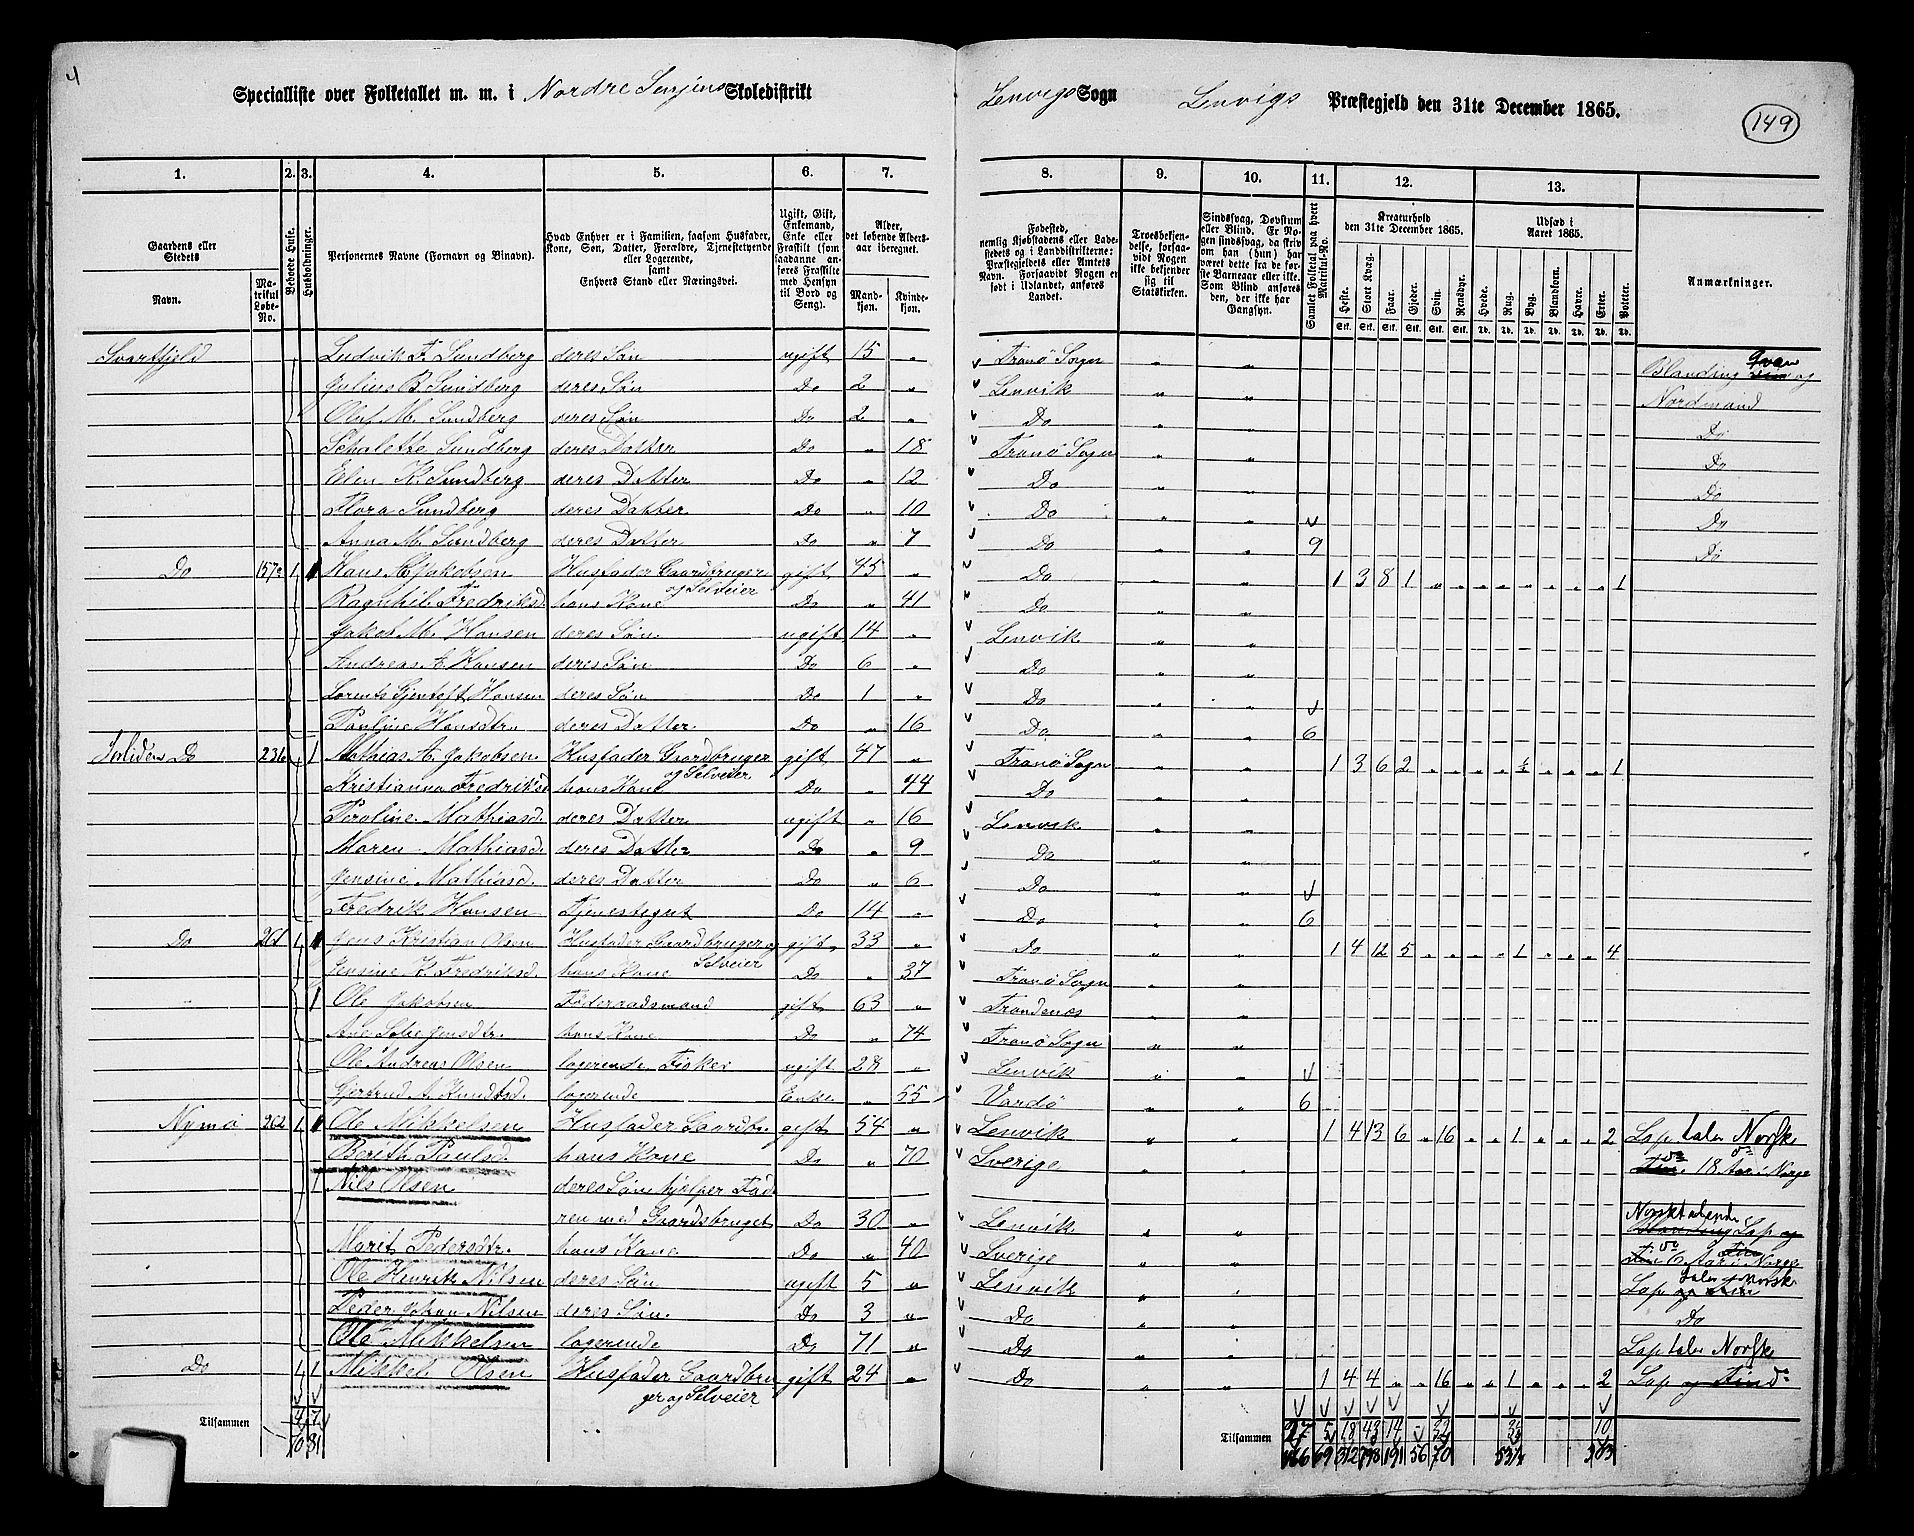 4
Specialliste over Folketallet m. m. i Nordre Senjens Skoledistrikt
Lenvigs Sogn Lenvigs Præstegjeld den 31te December 1865.
149
1. 2. 3. 4. 5. 6. 7. 8. 9. 10. 11. 12. 13.
Gaardens eller Stedets
Navn.
Matrikul Løbe-No.
Beboede Huse.
Husholdninger.
Personernes Navne (Fornavn og Binavn).
Hvad Enhver er i Familien, saasom Husfader, Kone, Søn, Datter, Forældre, Tjenestetyende eller Logerende, samt Enhvers Stand eller Næringsvei.
Ugift, Gift, Enkemand, Enke eller Fraskilt (som saadanne anføres Fraskilte med Hensyn til Bord og Seng).
Alder, det løbende Aldersaar iberegnet.
Mandkjøn. Kvindekjøn.
Fødested, nemlig Kjøbstadens eller Ladestedets og i Landdistrikterne: Præstegjeldets eller Amtets Navn. Forsaavidt Nogen er født i Udlandet, anføres Landet.
Troesbekjendelse, forsaavidt Nogen ikke bekjender sig til Statskirken.
Sindssvag, Døvstum eller Blind. Er Nogen sindssvag, da skriv om han (hun) har været dette fra de første Barneaar eller ikke. Som Blind anføres den, der ikke har Gangsyn.
Samlet Folketal paa hvert Matrikul-No.
Kreaturhold den 31te December 1865.
Heste. Stort Kvæg. Faar. Gjeder. Svin. Rensdyr.
Udsæd i Aaret 1865.
Hvede. Rug. Byg. Blandkorn. Havre. Erter. Poteter.
Anmærkninger.
Svartfjeld Ludvik F. Sundberg deres Søn ugift 15 „ Tranø Sogn „ „ Blanding Qvæn og
Julius B. Sundberg deres Søn Do 2 „ Lenvik „ „ Nordmand
Oluf M. Sundberg deres Søn Do 2 „ Do „ „ Do
Schalette Sundberg deres Datter Do „ 18 Tranø Sogn „ „ Do
Elen K. Sundberg deres Datter Do „ 12 Do „ „ Do
Flora Sundberg deres Datter Do „ 10 Do „ „ Do
Anna M. Sundberg deres Datter Do „ 7 Do „ „ 9 Do
Do 157a 1 1 Hans A. Jakobsen Husfader Gaardbruger og Selveier gift 45 „ Do „ „ 1 3 8 1 „ „ „ „ „ „ „ „ 1
Ragnhil Fredriksd. hans Kone Do „ 41 Do „ „
Jakob M. Hansen deres Søn ugift 14 „ Lenvik „ „
Andreas A. Hansen deres Søn Do 6 „ Do „ „
Lorents Gjentoft Hansen deres Søn Do 1 „ Do „ „
Pauline Hansdtr. deres Datter Do „ 16 Do „ „ 6
Do 231 1 Mathias A. Jakobsen Husfader Gaardbruger og Selveier gift 47 „ Tranø Sogn „ „ 1 3 6 2 „ „ „ „ ½ „ „ „ 1
Kristianna Fredriksd hans Kone Do „ 44 Do „ „
Peroline Mathiasd. deres Datter ugift „ 16 Lenvik „ „
Maren Mathiasd. deres Datter Do „ 9 Do „ „
Jensine Mathiasd. deres Datter Do „ 6 Do „ „
Fredrik Hansen Tjenestegut Do 14 „ Do „ „ 6
Do 261 1 1 Jens Kristian Olsen Husfader Gaardbruger og Selveier gift 33 „ Do „ „ 1 4 12 5 „ „ „ „ 1 „ „ „ 4
Jensine K. Fredriksd. hans Kone Do „ 37 Tranø Sogn „ „
1 Ole Jakobsen Føderaadsmand gift 63 „ Trondenæs „ „
Ane Sofie Jensdtr. hans Kone Do „ 74 Tranø Sogn „ „
Ole Andreas Olsen logerende Fisker ugift 28 „ Lenvik „ „
Gjertrud A. Knudtsd. logerende Enke „ 55 Vardö „ „ 6
Nymo 262 1 1 Ole Mikkelsen Husfader Gaardbr. gift 54 „ Lenvik „ „ 1 4 13 6 „ 16 „ „ 1 „ „ „ 2 Lap taler Norsk
Berith Paulsd. hans Kone Do „ 70 Sverige „ „ 18 Aar i Norge
1 Nils Olsen deres Søn hjelper Fad-
ren med Gaardsbruget Do 30 „ Lenvik „ „ Norsktalende Lap
Marit Pedersdtr. hans Kone Do „ 40 Sverige „ „ 6 Aar i Norge
Ole Henrik Nilsen deres Søn ugift 5 „ Lenvik „ „ Lap taler Norsk
Peder Johan Nilsen deres Søn. Do 3 „ Do „ „ Do
Ole Mikkelsen logerende Do 71 „ Do „ „ Lap taler Norsk
Do 1 1 Mikkel Olsen Husfader Gaardbru- gift 24 „ Do „ „ 1 4 4 „ „ 16 „ „ 1 „ „ „ 2 Lap og Find
ger og Selveier
Tilsammen 4 7
Tilsammen 27 5 18 43 14 „ 32 10